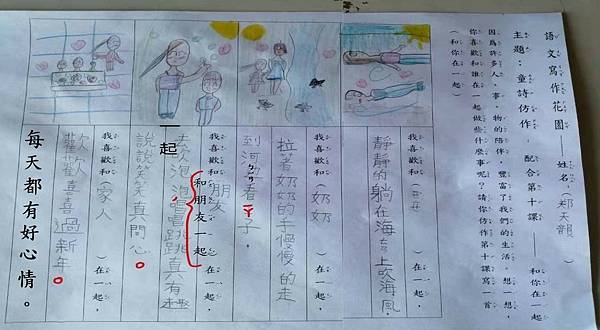 語文寫作花園——姓名（鄭天韻）
主題：童詩仿作。配合第十課——和你在一起
因為許多人、事、物的陪伴，豐富了我們的生活。想一想，
你喜歡和誰在一起做些什麼事呢？請你仿作第十課寫一首
（和你在一起）
我喜歡和（）在一起，
靜靜的躺在海上吹海風，
我喜歡和（奶奶）在一起，
拉著奶奶的手慢慢的走
到河看子，
我喜歡和朋友在一起，
和朋友一起
一起
吹泡泡唱跳跳真有趣
說說笑笑真開心。
我喜歡和家人在一起，
歡歡喜喜過新年。
每天都有好心情。